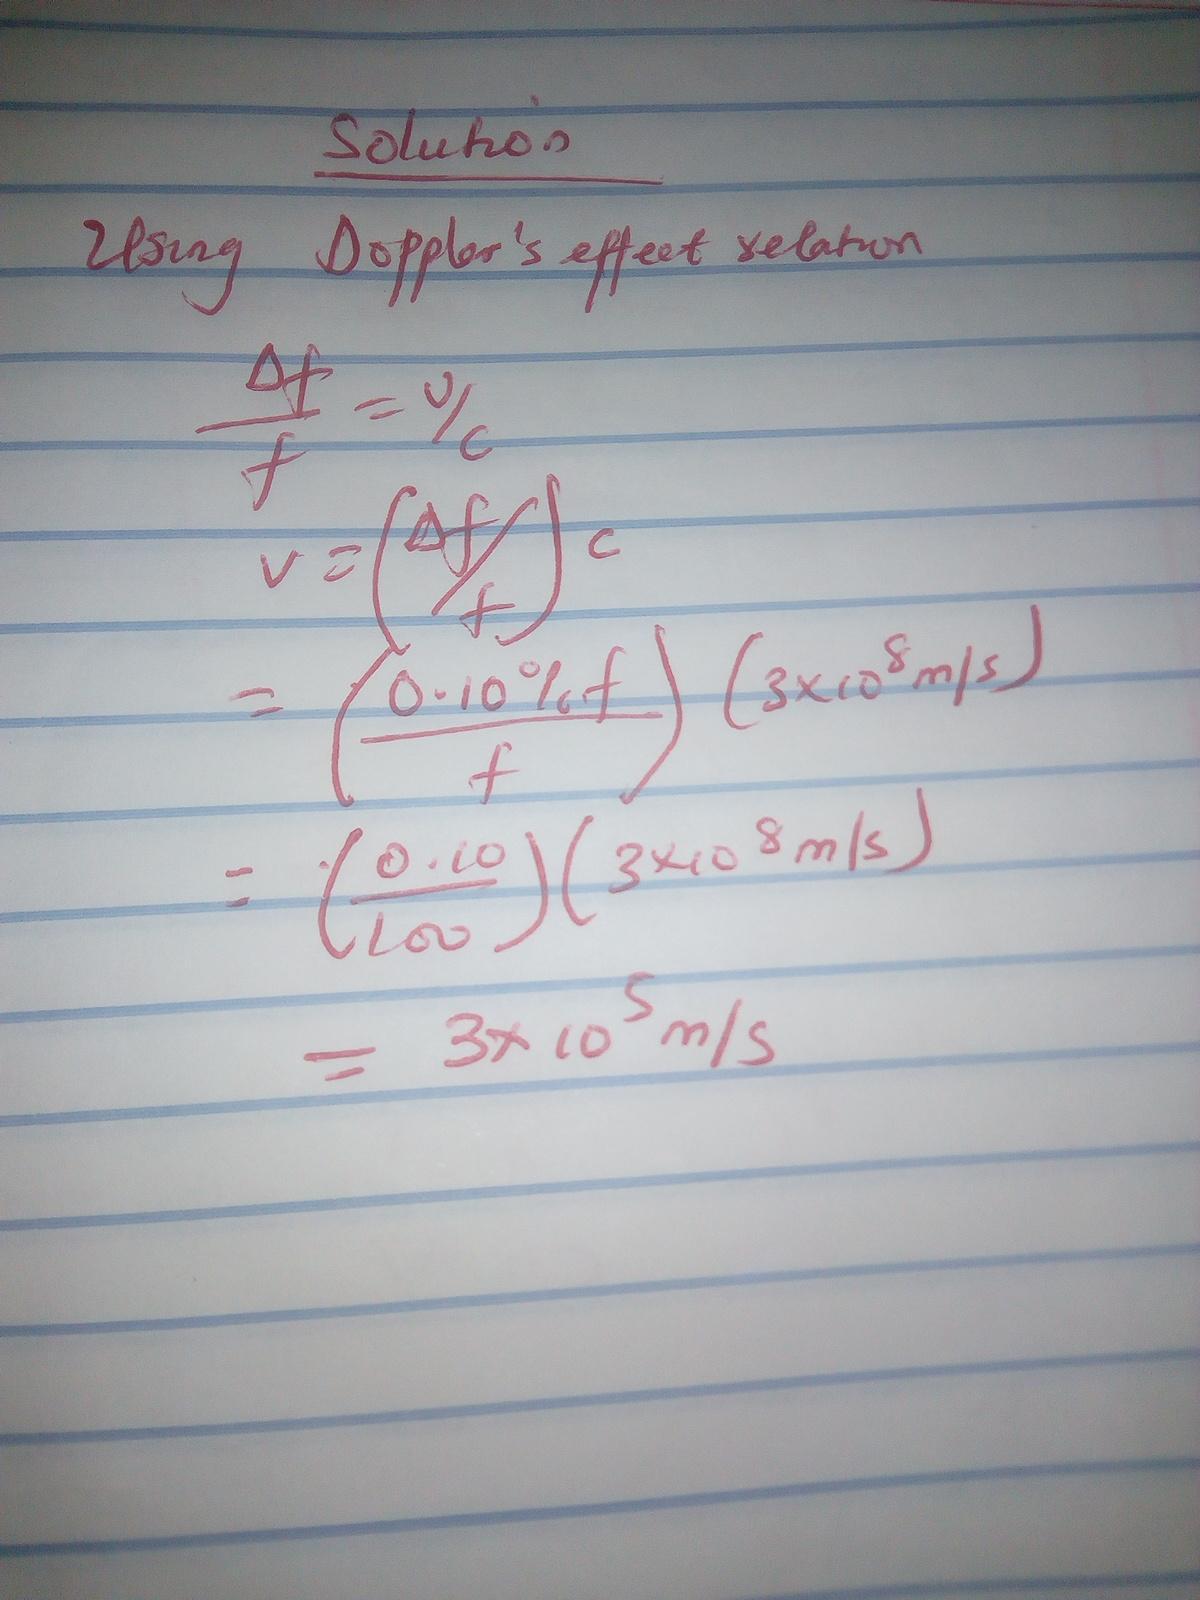 Solution
Using Doppler's effect relation
Δf/f = v/c
v = (Δf/f) c
= (0.10% f / f) (3×10⁸ m/s)
= (0.10/100) (3×10⁸ m/s)
= 3×10⁵ m/s